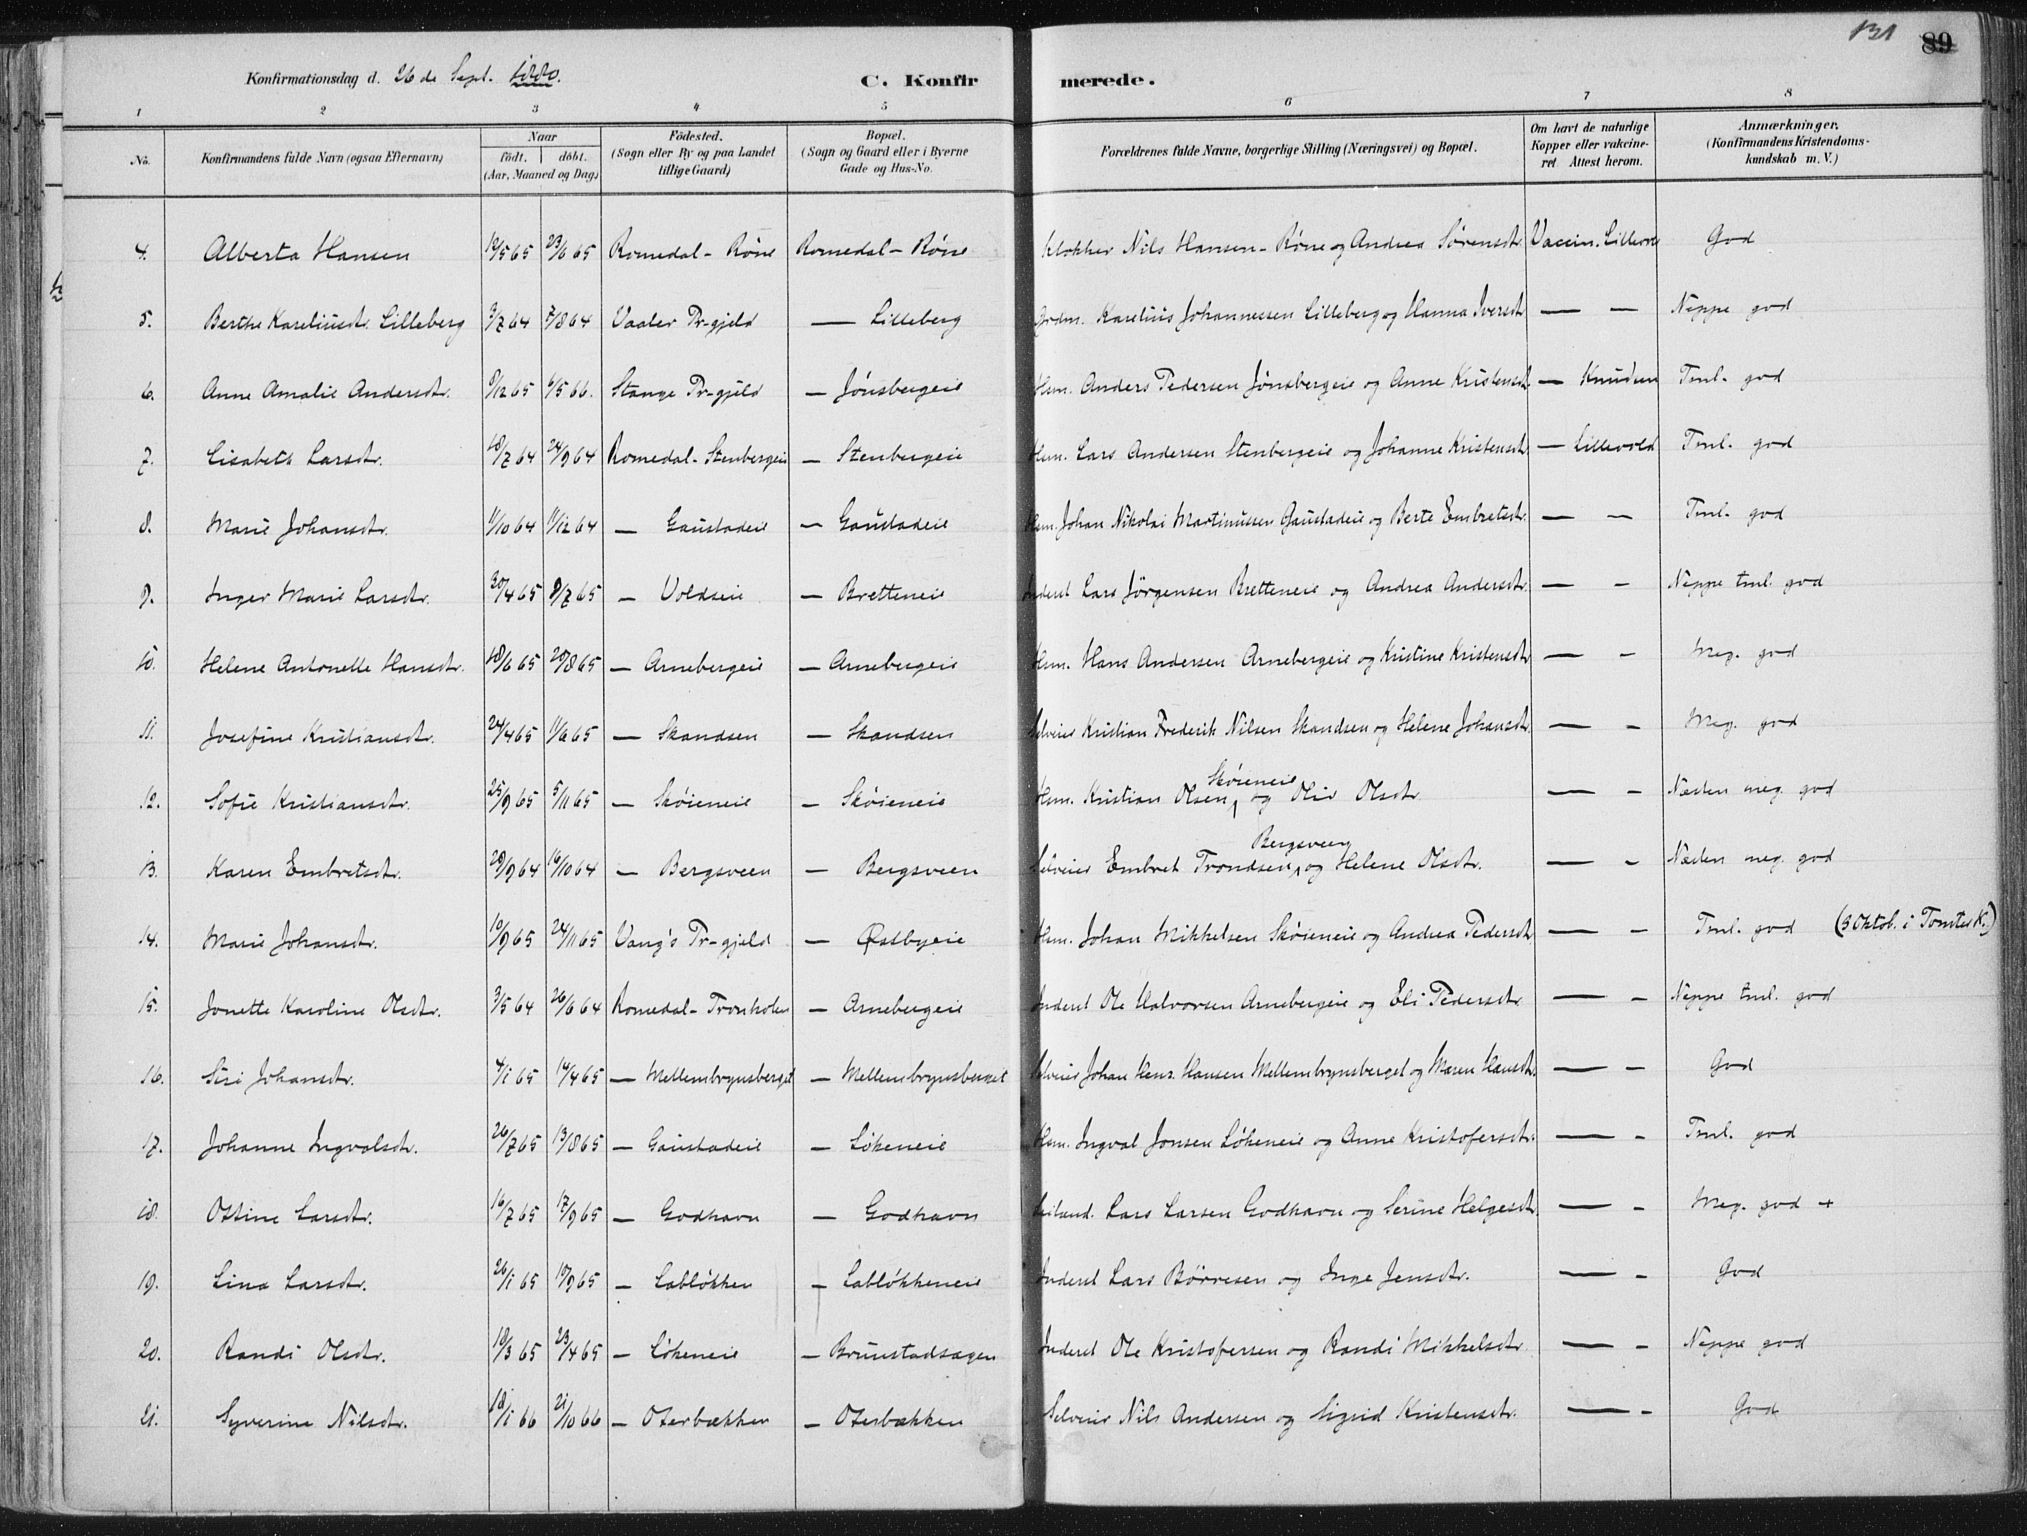 131 89
Konfirmationsdag d. 26de Sept. 1880. C. Konfirmerede.
1 2 3 4 5 6 7 8
No. Konfirmandens fulde Navn (ogsaa Efternavn) Naar födt. döbt. (Aar, Maaned og Dag) Födested. (Sogn eller By og paa Landet tillige Gaard) Bopæl. (Sogn og Gaard eller i Byerne Gade og Hus-No. Forældrenes fulde Navne, borgerlige Stilling (Næringsvei) og Bopæl. Om havt de naturlige Kopper eller vakcineret Attest herom. Anmærkninger. (Konfirmandens Kristendomskundskab m. V.)
4. Alberta Hansen 12/5 65 23/6 65 Romedal - Røne Romedal - Røne Klokker Nils Hansen - Røne og Andrea Sørensdtr. Vaccin. Lillevold God
5. Berthe Kareliusdtr. Lilleberg 3/7 64 7/8 64 Vaaler Pr-gjeld — Lilleberg Grdm. Karelius Johannessen Lilleberg og Hanna Iversdtr — — Neppe god
6. Anne Amalie Andersdtr. 9/12 65 6/5 66. Stange Pr-gjeld — Jónsbergeie Hsm. Anders Pedersen Jónsbergeie og Anne Kristensdtr. — Knudsen Tml. god
7. Lisabeth Larsdtr. 18/7 64 24/9 64 Romedal - Stenbergeie — Stenbergeie Hsm. Lars Andersen Stenbergeie og Johanne Kristensdtr — Lillevold Tml. god
8. Marie Johansdtr. 11/10 64 11/12 64 — Gaustadeie — Gaustadeie Hsm. Johan Nikolai Martinussen Gaustadeie og Berte Embretsdtr. — — Tml. god
9. Inger Marie Larsdtr. 30/4 65 9/7 65 — Voldseie — Bretteneie Inderst Lars Jörgensen Bretteneie og Andrea Andersdtr. — — Neppe tml. god
10. Helene Antonette Hansdtr. 18/6 65 20/8 65 — Arnebergeie — Arnebergeie Hsm. Hans Andersen Arnebergeie og Kristine Kristensdtr — — Meg. god
11. Josefine Kristiansdtr. 24/4 65 11/6 65 — Skandsen — Skandsen Selveier Kristian Frederik Nilsen Skandsen og Helene Johansdtr. — — Meg. god
12. Sofie Kristiansdtr. 25/9 65 5/11 65 — Skóieneie — Skóieneie Hsm. Kristian Olsen, Skóieneie og Olie Olsdtr — — Næsten meg. god
13. Karen Embretsdtr. 29/9 64 16/10 64 — Bergsveen — Bergsveen Selveier Embret Trondsen, Bergsveen og Helene Olsdtr. — — Næsten meg. god
14. Marie Johansdtr. 10/9 65 24/11 65 Vang's Pr-gjeld — Østbyeie Hsm. Johan Mikkelsen Skóieneie og Andrea Pedersdtr — — Tml. god (3 Oktob. i Tomter K.)
15. Jonette Karoline Olsdtr. 3/5 64 26/6 64 Romedal - Tronholen — Arnebergeie Inderst Ole Halvorsen Arnebergeie og Eli Pedersdtr — — Neppe tml. god
16. Siri Johansdtr. 4/1 65 14/4 65 — Mellembrynsberget — Mellembrynsberget Selveier Johan Henr. Hansen Mellembrynsberget og Maren Hansdtr. — — God
17. Johanne Ingvalsdtr. 26/7 65 13/8 65 — Gaustadeie — Lókeneie Hsm. Ingval Jonsen Lókeneie og Anne Kristofersdtr. — — Tml. god
18. Ottine Larsdtr. 16/7 65 17/9 65 — Godhavn — Godhavn Lars Larsen Godhavn og Serine Helgesdtr. — — Meg. god +
19. Lina Larsdtr. 26/1 65 10/9 65 — Lablókken — Lablókkeneie Inderst Lars Börresen og Inge Jensdtr. — — God
20. Randi Olsdtr. 18/3 65 23/4 65 — Lókeneie — Brunstadsagen Inderst Ole Kristofersen og Randi Mikkelsdtr. — — Neppe god
21. Syverine Nilsdtr. 18/1 66 21/10 66 — Oterbækken — Oterbækken Selveier Nils Andersen og Sigrid Kristensdtr. — — God